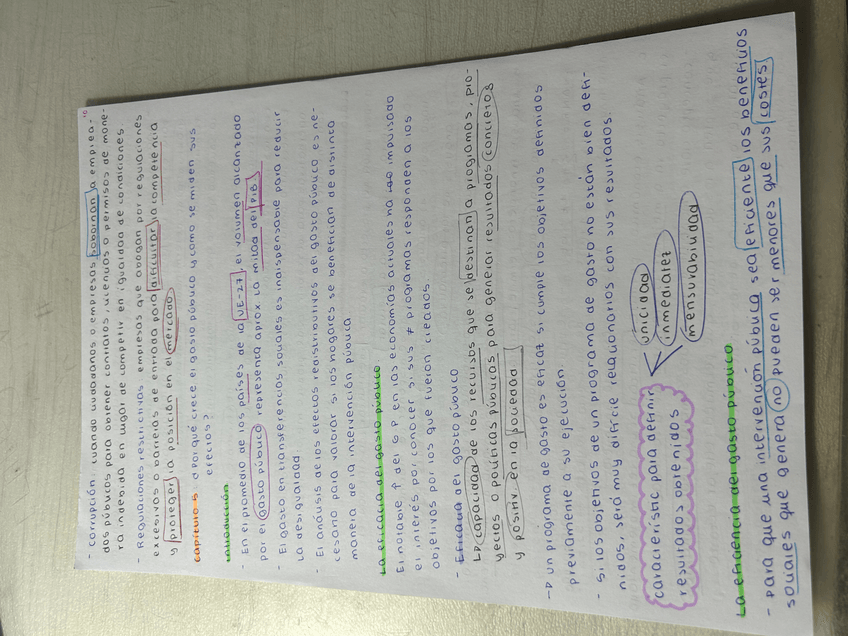 10
- Corrupción: cuando ciudadanos o empresas sobornan a emplea-
dos públicos para obtener contratos, licencias o permisos de mane-
ra indebida en lugar de competir en igualdad de condiciones
- Regulaciones restrictivas: empresas que abogan por regulaciones
excesivas o barreras de entrada para dificultar la competencia
y proteger la posición en el mercado
Capítulo 5 ¿Por qué crece el gasto público y cómo se miden sus
efectos?
Introducción
- En el promedio de los países de la UE-27, el volumen alcanzado
por el gasto público representa aprox la mitad del PIB.
- El gasto en transferencias sociales es indispensable para reducir
la desigualdad
- El análisis de los efectos redistributivos del gasto público es ne-
cesario para valorar si los hogares se benefician de distinta
manera de la intervención pública
La eficacia del gasto público
El notable ↑ del G P en las economías actuales ha impulsado
el interés por conocer si sus ≠ programas responden a los
objetivos por los que fueron creados
- Eficacia del gasto público
↳ capacidad de los recursos que se destinan a programas, pro-
yectos o políticas públicas para generar resultados concretos
y positiv. en la sociedad
→ un programa de gasto es eficaz si cumple los objetivos definidos
previamente a su ejecución
- Si los objetivos de un programa de gasto no están bien defi-
nidos, será muy difícil relacionarlos con sus resultados.
característic para definir
resultados obtenidos
unicidad
inmediatez
mensurabilidad
La eficiencia del gasto público
- Para que una intervención pública sea eficiente los beneficios
sociales que genera no pueden ser menores que sus costes